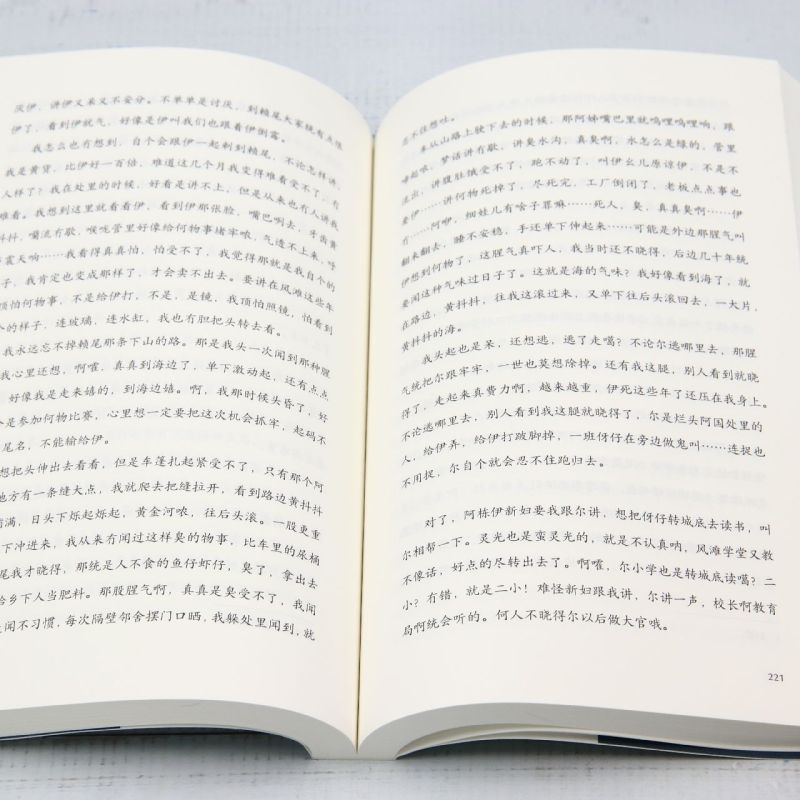 厌伊，讲伊又来又不安分。不单单是讨厌，到赖尾大家统有点恨
伊了，看到伊就气，好像是伊叫我们也跟着伊倒霉。
我怎么也冇想到，自个会跟伊一起剩到赖尾，不论怎样讲，
我是黄货，比伊好一百倍，难道这几个月我变得难看受不了，冇
人样了？我在处里的时候，好看是讲不上，但是从来也冇人讲我
难看。我想到这里就看看伊，看到伊那张脸，嘴巴咧去，牙齿黄
抖抖，嘴流冇歇，喉咙管里好像给何物事堵牢哝，气透不上来，呼
震天响……我看得真真怕，怕受不了，我觉得那就是我自个的
子，我肯定也变成那样了，才会卖不出去。要讲在风滩这些年
顶怕何物事，不是给伊打，不是，是镜，我顶怕照镜，怕看到
个的样子，连玻璃，连水缸，我也冇胆把头转去看。
我永远忘不掉赖尾那条下山的路。那是我头一次闻到那种腥
我心里还想，啊嚯，真真到海边了，单下激动起，还有点点
好像我是走来嬉的，到海边嬉。啊，我那时候头昏了，好
是参加何物比赛，心里想一定要把这次机会抓牢，起码不
尾名，不能输给伊。
想把头伸出去看看，但是车篷扎起紧受不了，只有那个阿
地方有一条缝大点，我就爬去把缝拉开，看到路边黄抖抖
满，日头下烁起烁起，黄金河哝，往后头滚。一股更重
下冲进来，我从来冇闻过这样臭的物事，比车里的尿桶
尾我才晓得，那统是人不食的鱼仔虾仔，臭了，拿出去
给乡下人当肥料。那股腥气啊，真真是臭受不了，我闻
闻不习惯，每次隔壁邻舍摆门口晒，我躲处里闻到，就
忍不住想吐。
车从山路上驶下去的时候，那阿姊嘴巴里就呜哩呜哩响，跟
唾起哝，梦话讲冇歇，讲臭水沟，真臭啊，水怎么是绿的，管里
流出，讲腹肚饿受不了，跑不动了，叫伊幺儿愿谅伊，不是不
要伊……讲何物死掉了，尽死完，工厂倒闭了，老板点点事也
冇……阿咿，细娃儿有啥子罪嘛……死人，臭，真真臭啊……伊
翻来翻去，睡不安稳，手还单下伸起来……可能是外边那腥气叫
伊想到何物了，这腥气真吓人，我当时还不晓得，后边几十年统
要闻这种气味过日子了。这就是海的气味？我好像看到海了，就
在路边，黄抖抖，往我这滚过来，又单下往后头滚回去，一大片，
黄抖抖的海。
我头起也是呆，还想逃，逃了走噶？不论尔逃哪里去，那腥
气统把尔跟牢牢，一世也莫想除掉。还有我这腿，别人看到就晓
得了，走起来真费力啊，越来越重，伊死这些年了还压在我身上。
不论逃哪里去，别人看到我这腿就晓得了，尔是烂头阿国处里的
人，给伊弄，给伊打跛脚掉，一班伢仔在旁边做鬼叫……连捉也
不用捉，尔自个就会忍不住跑归去。
对了，阿栋伊新妇要跟尔讲，想把伢仔转城底去读书，叫
尔相帮一下。灵光也是蛮灵光的，就是不认真呐，风滩学堂又教
不像话，好点的尽转出去了。啊嚯，尔小学也是转城底读噶？二
小？冇错，就是二小！难怪新妇跟我讲，尔讲一声，校长啊教育
局啊统会听的。何人不晓得尔以后做大官哦。
221